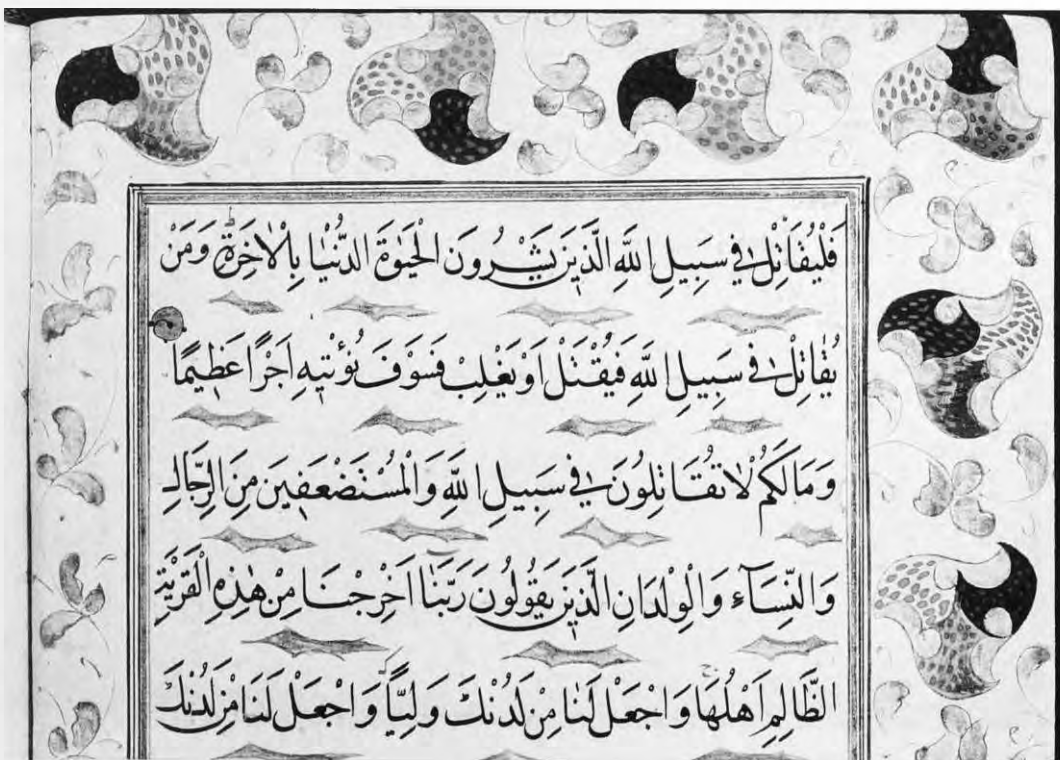 فَلْيُقَاتِلْ فِي سَبِيلِ اللَّهِ الَّذِينَ يَشْرُونَ الْحَيٰوةَ الدُّنْيَا بِالْاٰخِرَةِ وَمَنْ
يُقَاتِلْ فِي سَبِيلِ اللَّهِ فَيُقْتَلْ اَوْ يَغْلِبْ فَسَوْفَ نُؤْتِيهِ اَجْرًا عَظِيمًا
وَمَا لَكُمْ لَا تُقَاتِلُونَ فِي سَبِيلِ اللَّهِ وَالْمُسْتَضْعَفِينَ مِنَ الرِّجَالِ
وَالنِّسَآءِ وَالْوِلْدَانِ الَّذِينَ يَقُولُونَ رَبَّنَا اَخْرِجْنَا مِنْ هٰذِهِ الْقَرْيَةِ
الظَّالِمِ اَهْلُهَا وَاجْعَلْ لَنَا مِنْ لَدُنْكَ وَلِيًّا وَاجْعَلْ لَنَا مِنْ لَدُنْكَ